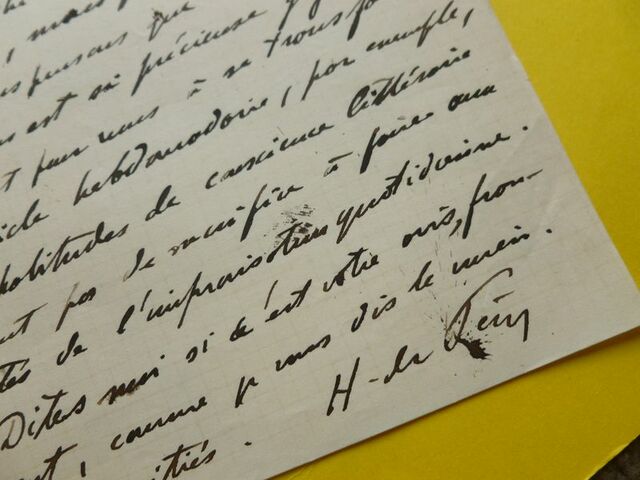 , mais
pensons que
est si précieuse
pour vous à se transfor
icle hebdomadaire, par exemple,
habitudes de conscience littéraire
nt pas de sacrifice à faire aux
tés de l'improvisation quotidienne.
Dites moi si c'est votre avis, fran-
t, comme je vous dis le mien.
itiés. H. de Pène